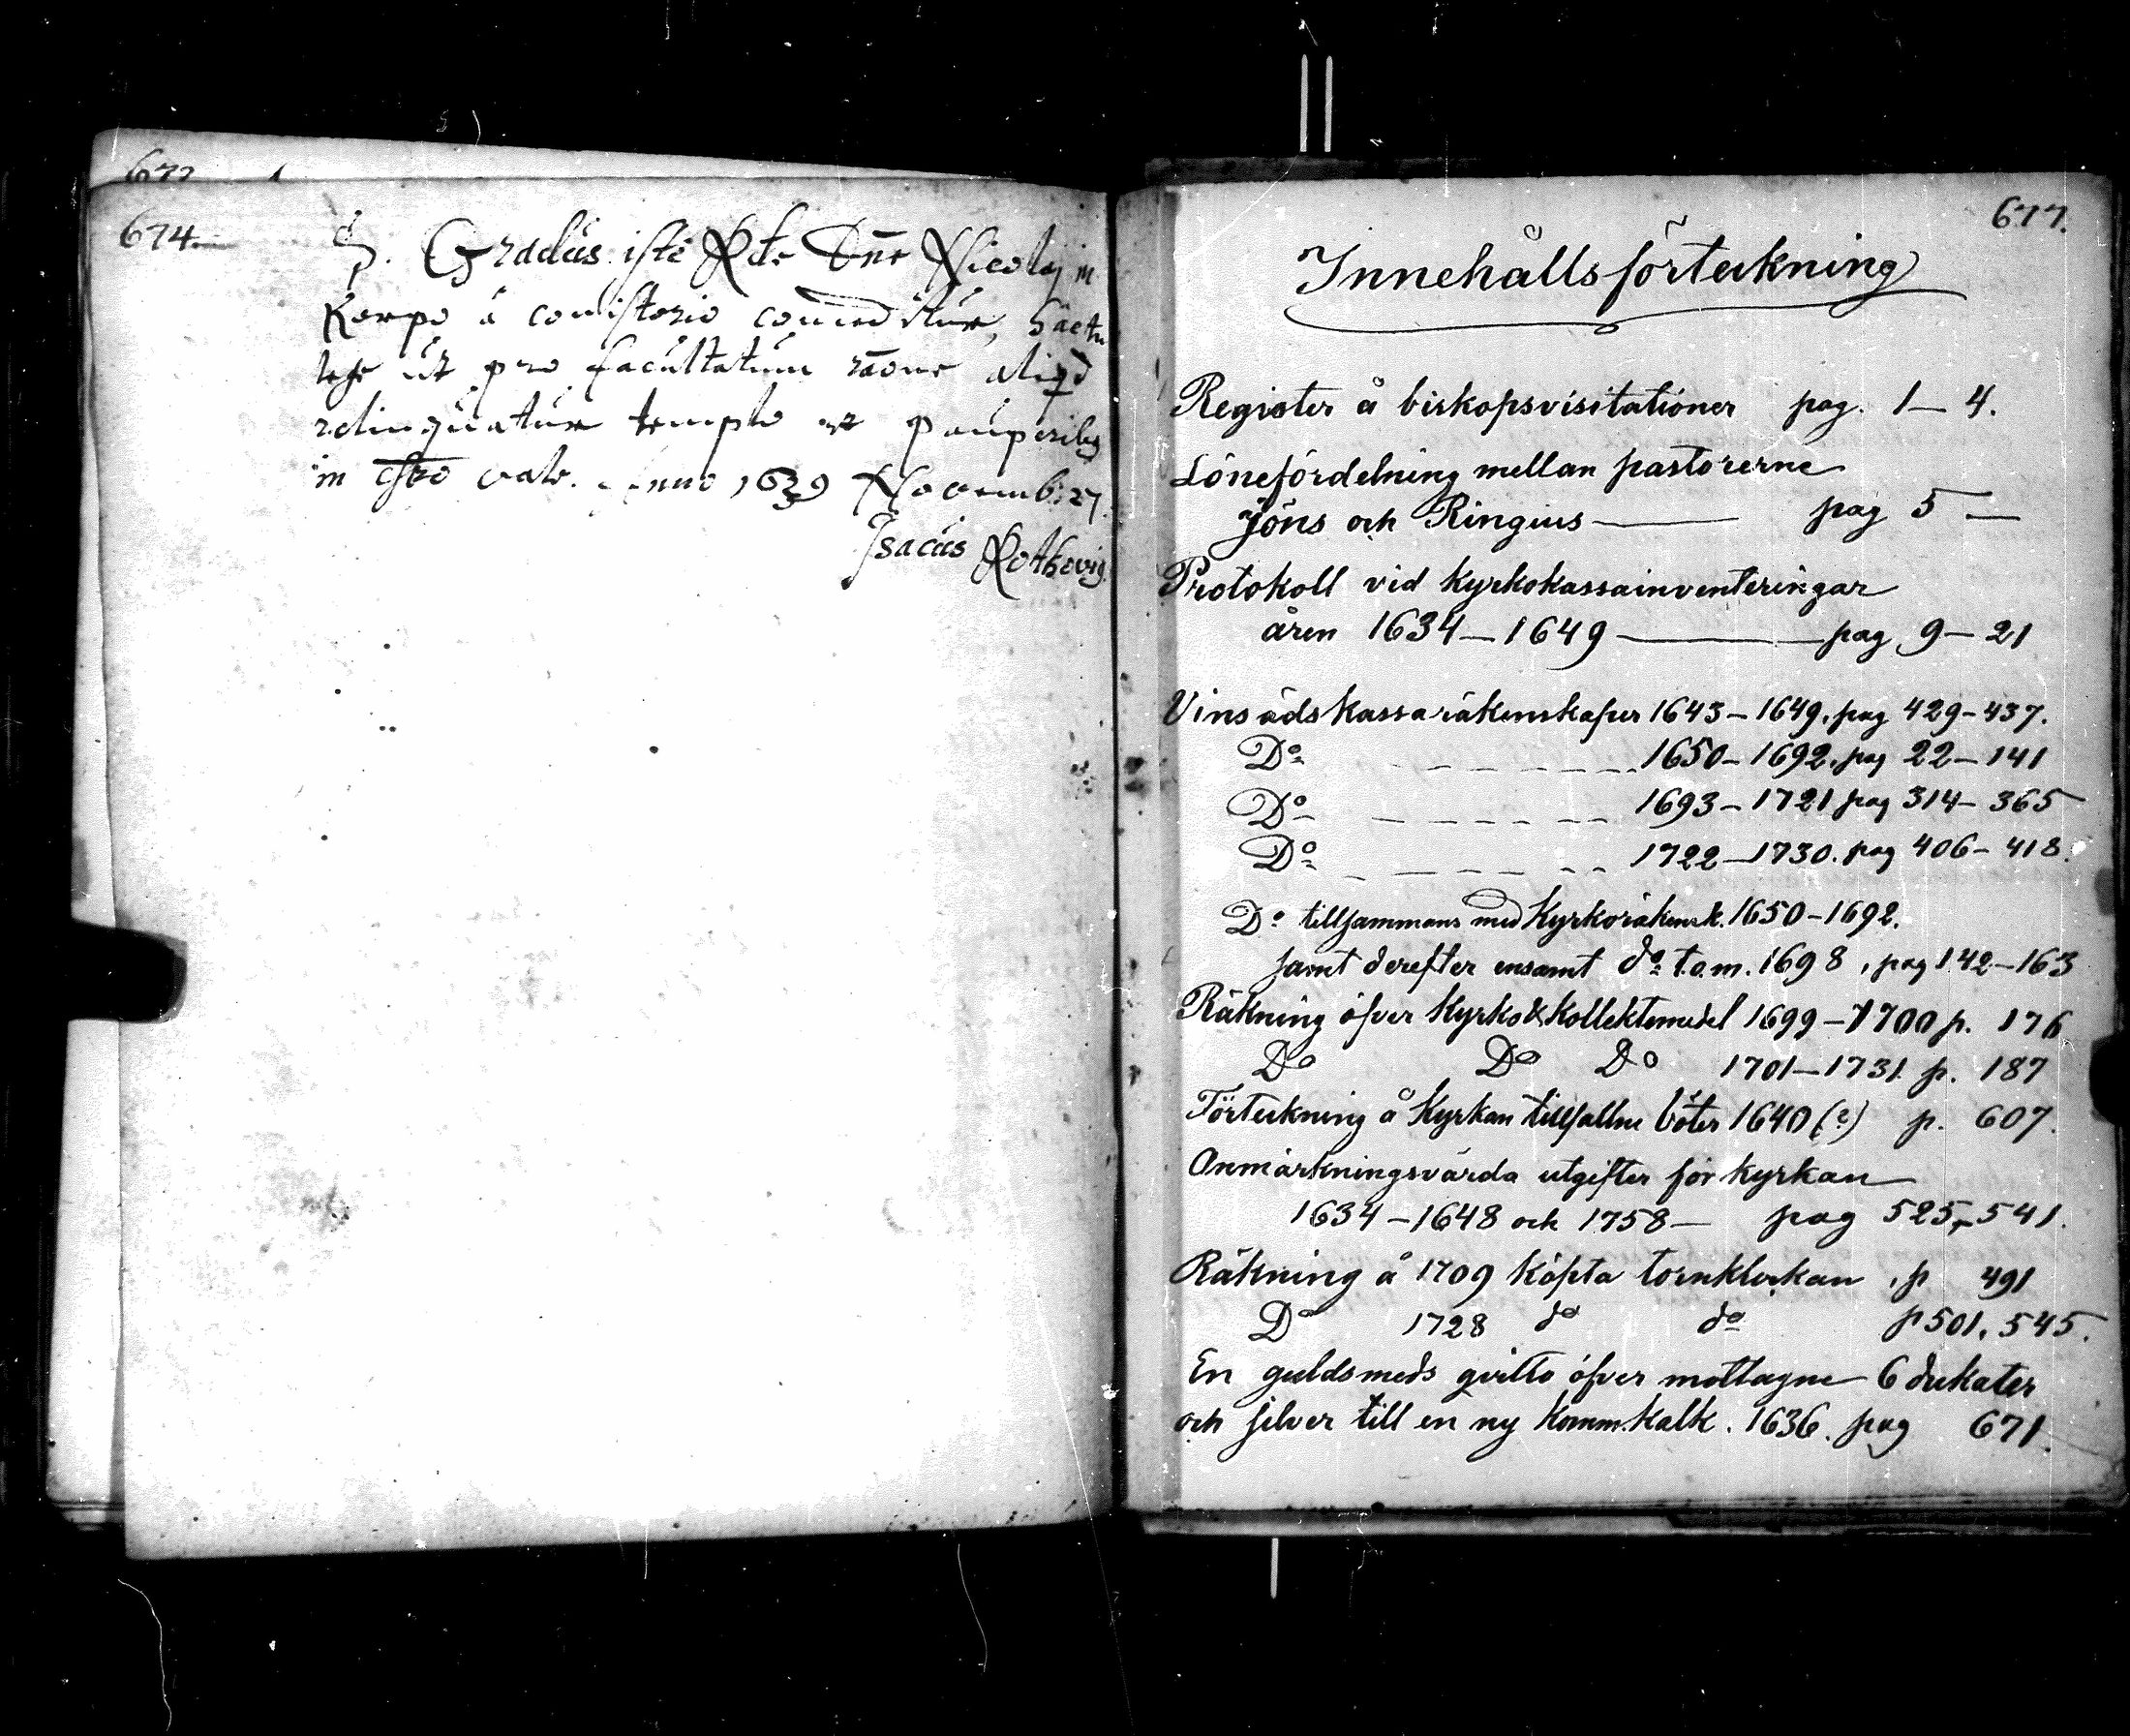 672
674.
S. Gradus iste Rde Dne Nicolaj in
Korpo à consistorio conceditur, hac tn
lege ut pro facultatum raone aliqd
relinquatur templo et pauperibg
in Chro vale. Anno 1639 Novemb: 27
Isacus Rothovig.
677.
Innehållsförteckning
Register å biskopsvisitationer pag. 1–4.
Lönefördelning mellan pastorerne
Jöns och Ringius — pag 5 —
Protokoll vid Kyrkokassainventeringar
åren 1634–1649 — pag 9–21
Vinsädskassaräkenskaper 1643–1649, pag 429–437.
Do 1650–1692, pag 22–141
Do 1693–1721 pag 314–365
Do 1722–1730. pag 406–418.
Do tillsammans med Kyrkoräkensk. 1650–1692.
samt derefter ensamt do t.o.m. 1698, pag 142–163
Räkning öfver Kyrko & Kollektmedel 1699–1700 p. 176
Do Do Do 1701–1731 p. 187
Förteckning å Kyrkan tillfallne böter 1640 (?) p. 607.
Anmärkningsvärda utgifter för kyrkan
1634–1648 och 1758 — pag 525, 541.
Räkning å 1709 köpta tornklockan, p 491
Do 1728 do do p 501, 545.
En guldsmeds qvitto öfver mottagne 6 dukater
och silver till en ny Komm.kalk. 1636. pag 671.